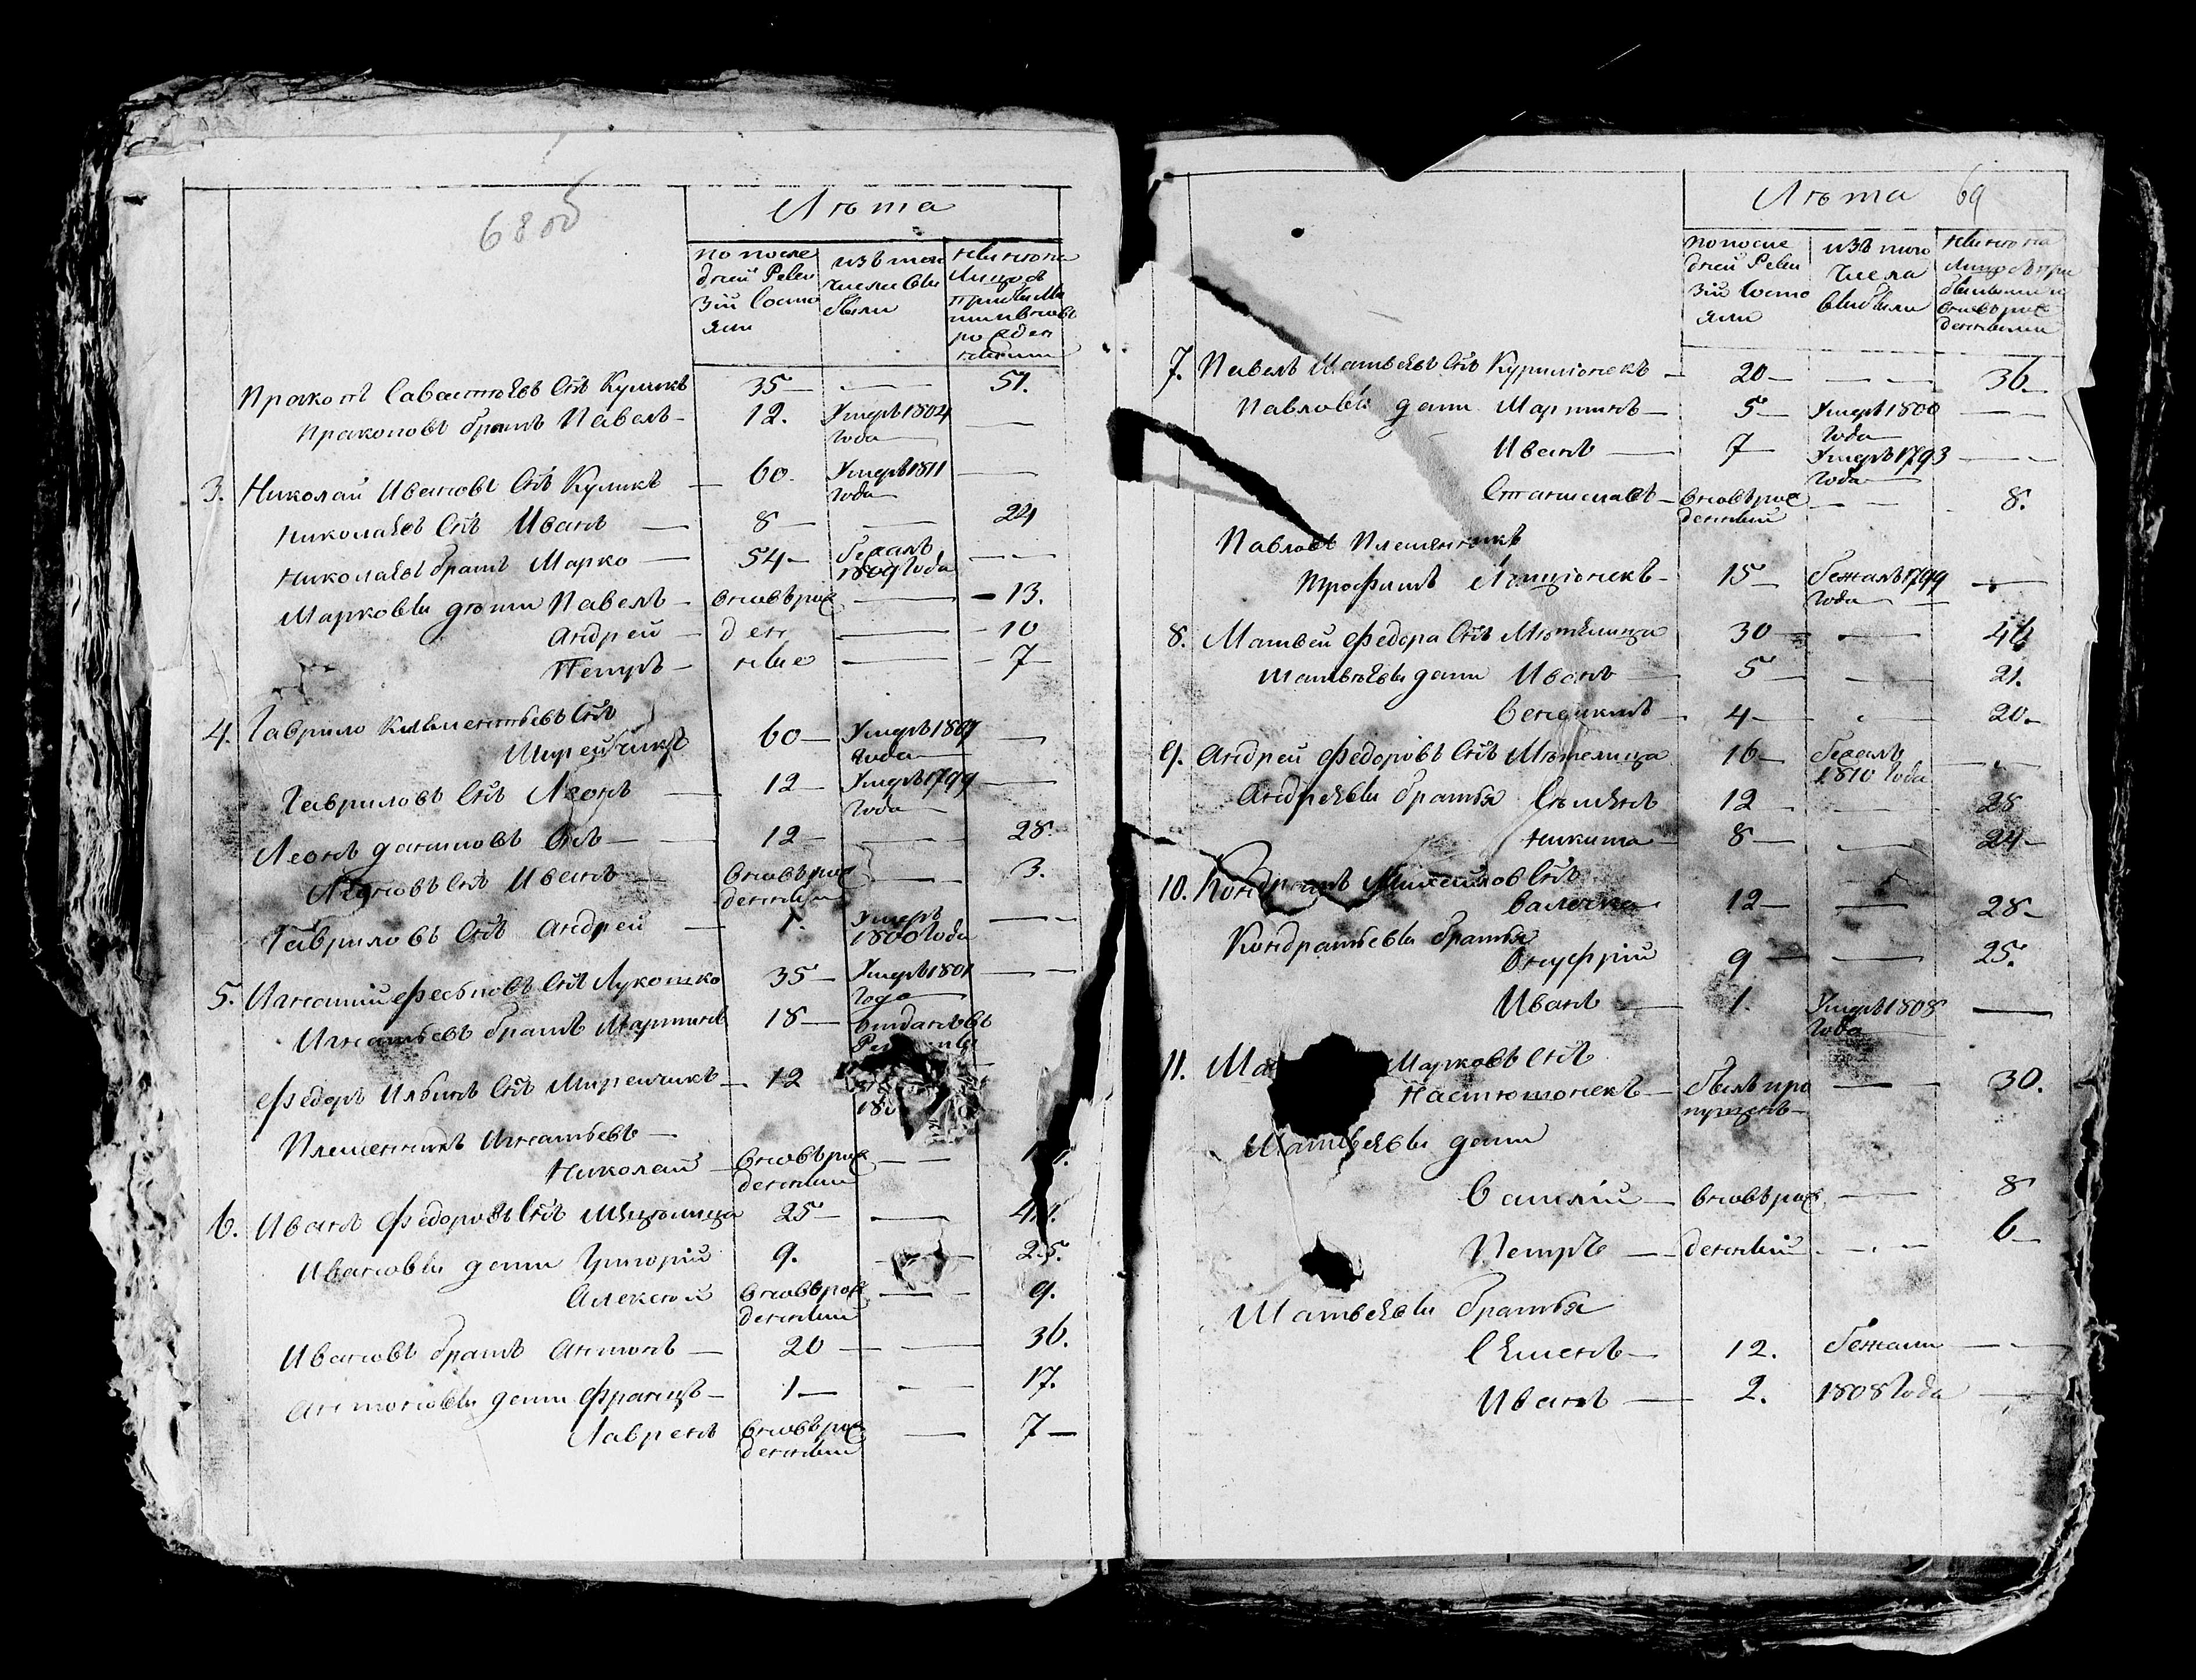 68 об
Лѣта
по после
дней Реви
зіи состо
яли
изъ того
числа вы
были
нынѣ на
лицо съ
прибылы
ми и вновь
рожден
ными
Пракопъ Савастѣевъ Сынъ Куликъ 35— — 51.
Пракоповъ братъ Павелъ— 12. Умеръ 1804 —
года
3. Николай Ивановъ Сынъ Куликъ — 60. Умеръ 1811 —
года
Николаевъ Сынъ Иванъ — 8— — 24
Николаевъ братъ Марко — 54— бежалъ — —
1809 года
Марковы дѣти Павелъ — вновърож — — 13.
Андрей — ден — — 10
Петръ — ные — — 7—
4. Гаврило Климентьевъ Сынъ
Мирейчикъ 60— Умеръ 1807 —
года
Гавриловъ Сынъ Леонъ — 12— Умеръ 1799 —
года
Леонъ Даниловъ Сынъ — — 12— — 28.
Леоновъ Сынъ Иванъ — вновърож — 3.
денный
Гавриловъ Сынъ Андрей — 1. Умеръ — —
1800 года
5. Игнатій Сынъ Лукошко 35— Умеръ 1801 — —
года
Игнатьевъ братъ Мартинъ 18— отданъ въ
Федоръ Ильинъ Сынъ Мирейчикъ— 12
Племянникъ Игнатьевъ—
Николай — вновърож — —
денный
6. Иванъ Федоровъ Сынъ Мятелица 25— — 41.
Ивановы дети Григорій 9. — 25.
Алексѣй вновърож — — 9.
денный
Ивановъ братъ Антонъ — 20 — — 36.
Антоновы дети Францъ— 1— — 17.
Лавренъ вновърож — 7—
денный
Лѣта 69
по после
дней Реви
зіи состо
яли
изъ того
числа
выбыли
нынѣ на
лицо съ при
былыми и
вновърож
денными
7. Павелъ Матвеевъ Сынъ Курилёнекъ — 20— — — 36.
Павловы дети Мартинъ— 5— Умеръ 1800 — —
года
Иванъ — 7— Умеръ 1793 — —
года
Станиславъ— вновърож — — 8.
денный
Павловъ Племянникъ
Трофимъ — 15— бежалъ 1799 —
года —
8. Матвей Федора Сынъ Мятелица 30— — 46
Матвѣевы дети Иванъ — 5— — 21.
Бенедиктъ— 4— — 20.
9. Андрей Федоровъ Сынъ Мятелица 16— бежалъ — —
1810 года
Андреевы братья Семенъ 12 — — 28
Никита— 8— — 24—
10. Кондратъ Михайловъ Сынъ
Балочка 12— — 28—
Кондратьевы братья
Онуфрій 9 — — 25.
Иванъ — 1. Умеръ 1808 —
года
11. Ма Марковъ Сынъ
Настютонекъ— былъ про — 30.
пущенъ—
Матвеевы дети
Василій — вновърож. — 8
Петръ — денный — — 6—
Матвеевы братья
Семенъ— 12. бежали — —
Иванъ — 2. 1808 года —